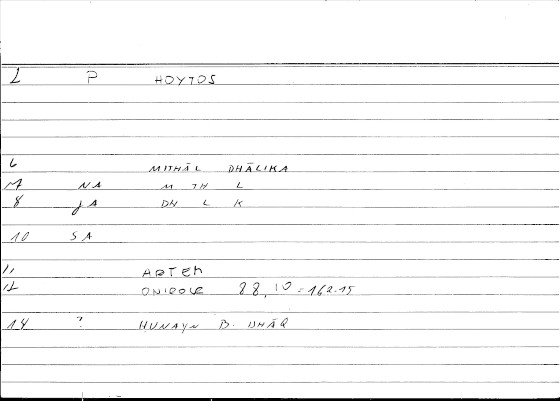 L P HOYTOS
6 MITHĀL DHĀLIKA
7 NA M TH L
8 JA DH L K
10 SA
11 ARTEM
12 ONIROLE 88,10 = 162.15
14 ? HUNAYN B. ISHĀQ